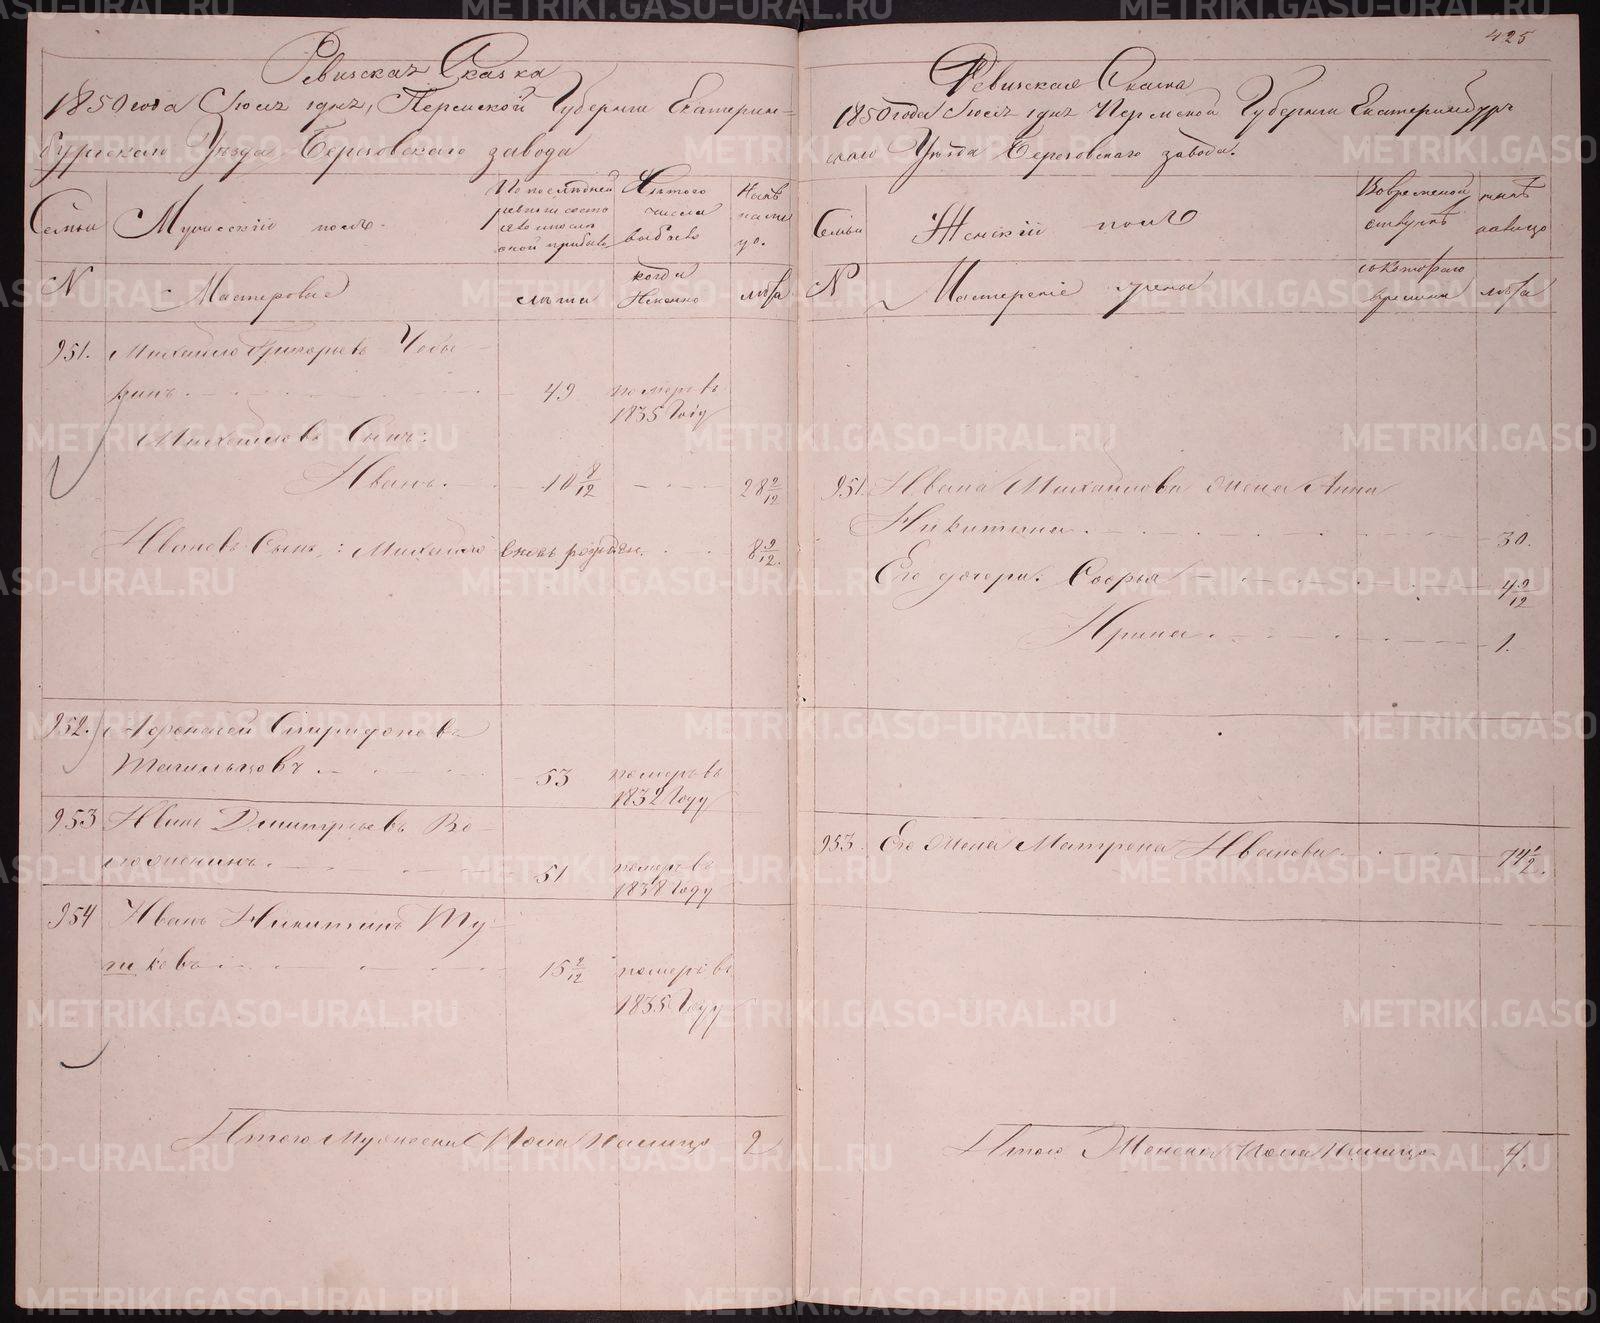 Ревизская Сказка
1850 года Июля 1 дня, Пермской Губернии Екатерин-
бургскаго Уезда Березовскаго завода
Семьи
Мужескiй полъ.
По последней ревизiи состо
Изъ того числа выбыло
Ныне на лицо.
N
Мастеровые
лета
когда Именно
лета
951. Михайло Григорьевъ Чебы-
кинъ 49 померъ въ
1835 Году
Михайловъ Сынъ:
Иванъ. 10 8/12 28 2/12
Ивановъ Сынъ: Михайло вновь рожден. 8 9/12.
952. Афонасей Спиридоновъ
Тагильцовъ 53 померъ въ
1832 Году
953 Иванъ Дмитрьевъ Во-
ложенинъ. 51 померъ въ
1838 Году
954 Иванъ Никитинъ Ту-
шковъ 15 2/12 померъ въ
1835 Году
Итого Мужеска Пола На лицо 2
425
Ревизская Сказка
1850 года Июля 1 дня Пермской Губернiи Екатеринбург
скаго Уезда Березовскаго завода.
Семьи
Женскiй полъ
Во временной отлучке
Ныне на лицо
N
Мастерскiе жены
съ котораго времени
лета
951. Ивана Михайлова жена Анна
Никитина 30.
Его дочери: Софья 4 9/12
Ирина 1.
953. Его Жена Матрена Иванова 74 1/2.
Итого Женска Пола На лицо 4.
METRIKI.GASO-URAL.RU